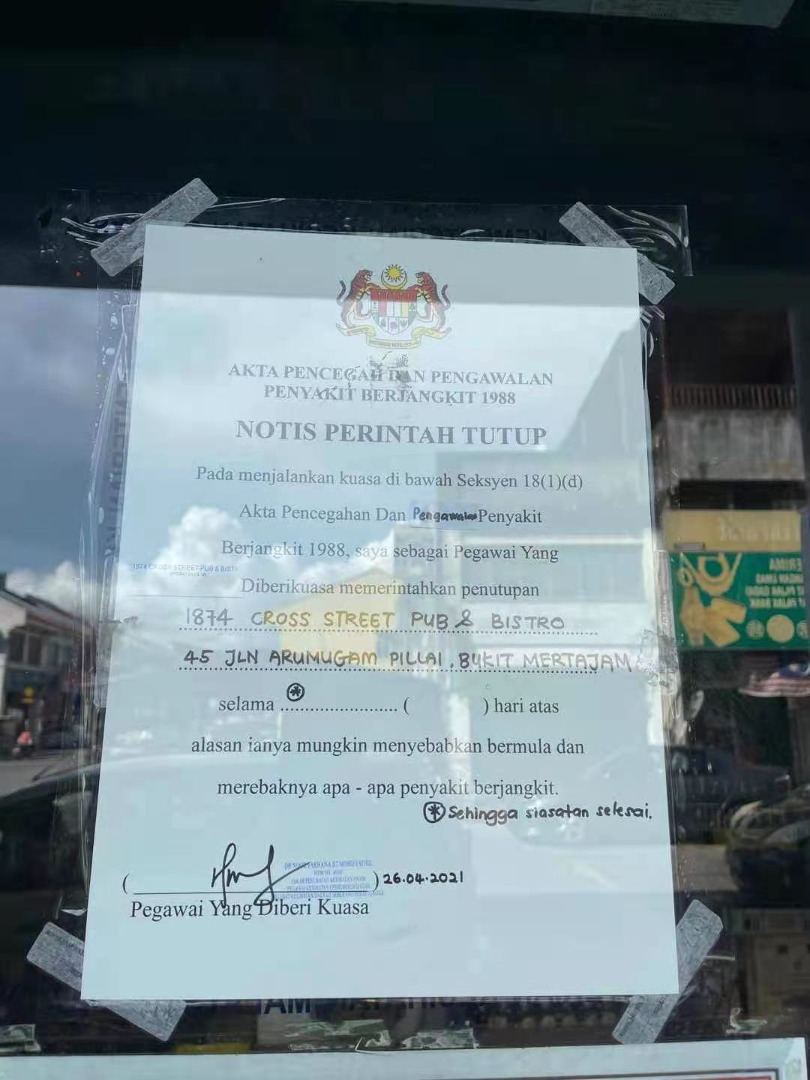 AKTA PENCEGAH DAN PENGAWALAN
PENYAKIT BERJANGKIT 1988
NOTIS PERINTAH TUTUP
Pada menjalankan kuasa di bawah Seksyen 18(1)(d)
Akta Pencegahan Dan Pengawalan Penyakit
Berjangkit 1988, saya sebagai Pegawai Yang
1874 CROSS STREET PUB & BISTRO
Diberikuasa memerintahkan penutupan
1874 CROSS STREET PUB & BISTRO
45 JLN ARUMUGAM PILLAI, BUKIT MERTAJAM
selama * ........................ ( ) hari atas
alasan ianya mungkin menyebabkan bermula dan
merebaknya apa - apa penyakit berjangkit.
* Sehingga siasatan selesai.
( ) 26.04.2021
Pegawai Yang Diberi Kuasa